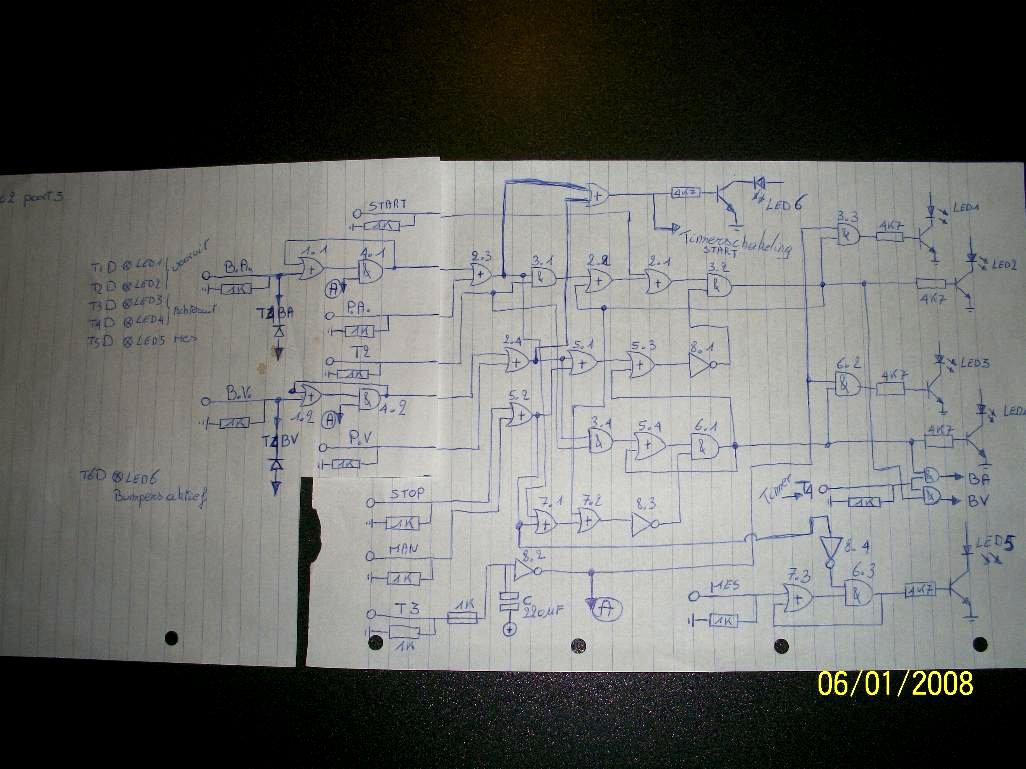 T1 D ⊗ LED1
T2 D ⊗ LED2
T3 D ⊗ LED3
T4 D ⊗ LED4
T5 D ⊗ LED5 MES
T6D ⊗ LED6
Bumpers aktief
B.A.
1K
BA
B.V.
1K
BV
START
1K
1.1
4.1
&
A
P.A.
1K
T2
1K
1.2
4.2
&
A
P.V
1K
STOP
1K
MAN
1K
T3
1K
1K
C
220µF
8.2
A
2.3
3.1
&
2.2
2.1
3.2
&
2.4
5.1
5.3
8.1
5.2
3.4
&
5.4
6.1
&
7.1
7.2
8.3
4K7
LED6
Timmerschakeling
START
3.3
&
4K7
LED1
4K7
LED2
6.2
&
4K7
LED3
4K7
Timer
1K
&
&
BA
BV
8.4
MES
1K
7.3
6.3
&
4K7
LED5
06/01/2008